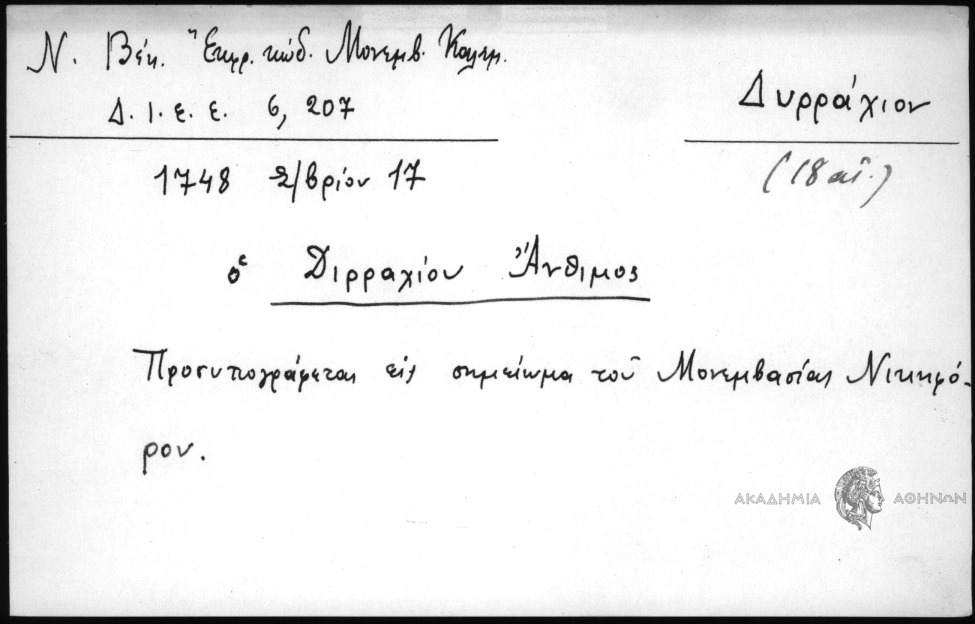 Ν. Βέη. Ἔκφρ. κώδ. Μονεμβ. Καλαμ.
Δ. Ι. Ε. Ε. 6, 207
Δυρράχιον
(18 αἰ.)
1748 2/βρίου 17
ὁ Διρραχίου Ἄνθιμος
Προσυπογράφεται εἰς σημείωμα τοῦ Μονεμβασίας Νικηφό-
ρου.
ΑΚΑΔΗΜΙΑ ΑΘΗΝΩΝ